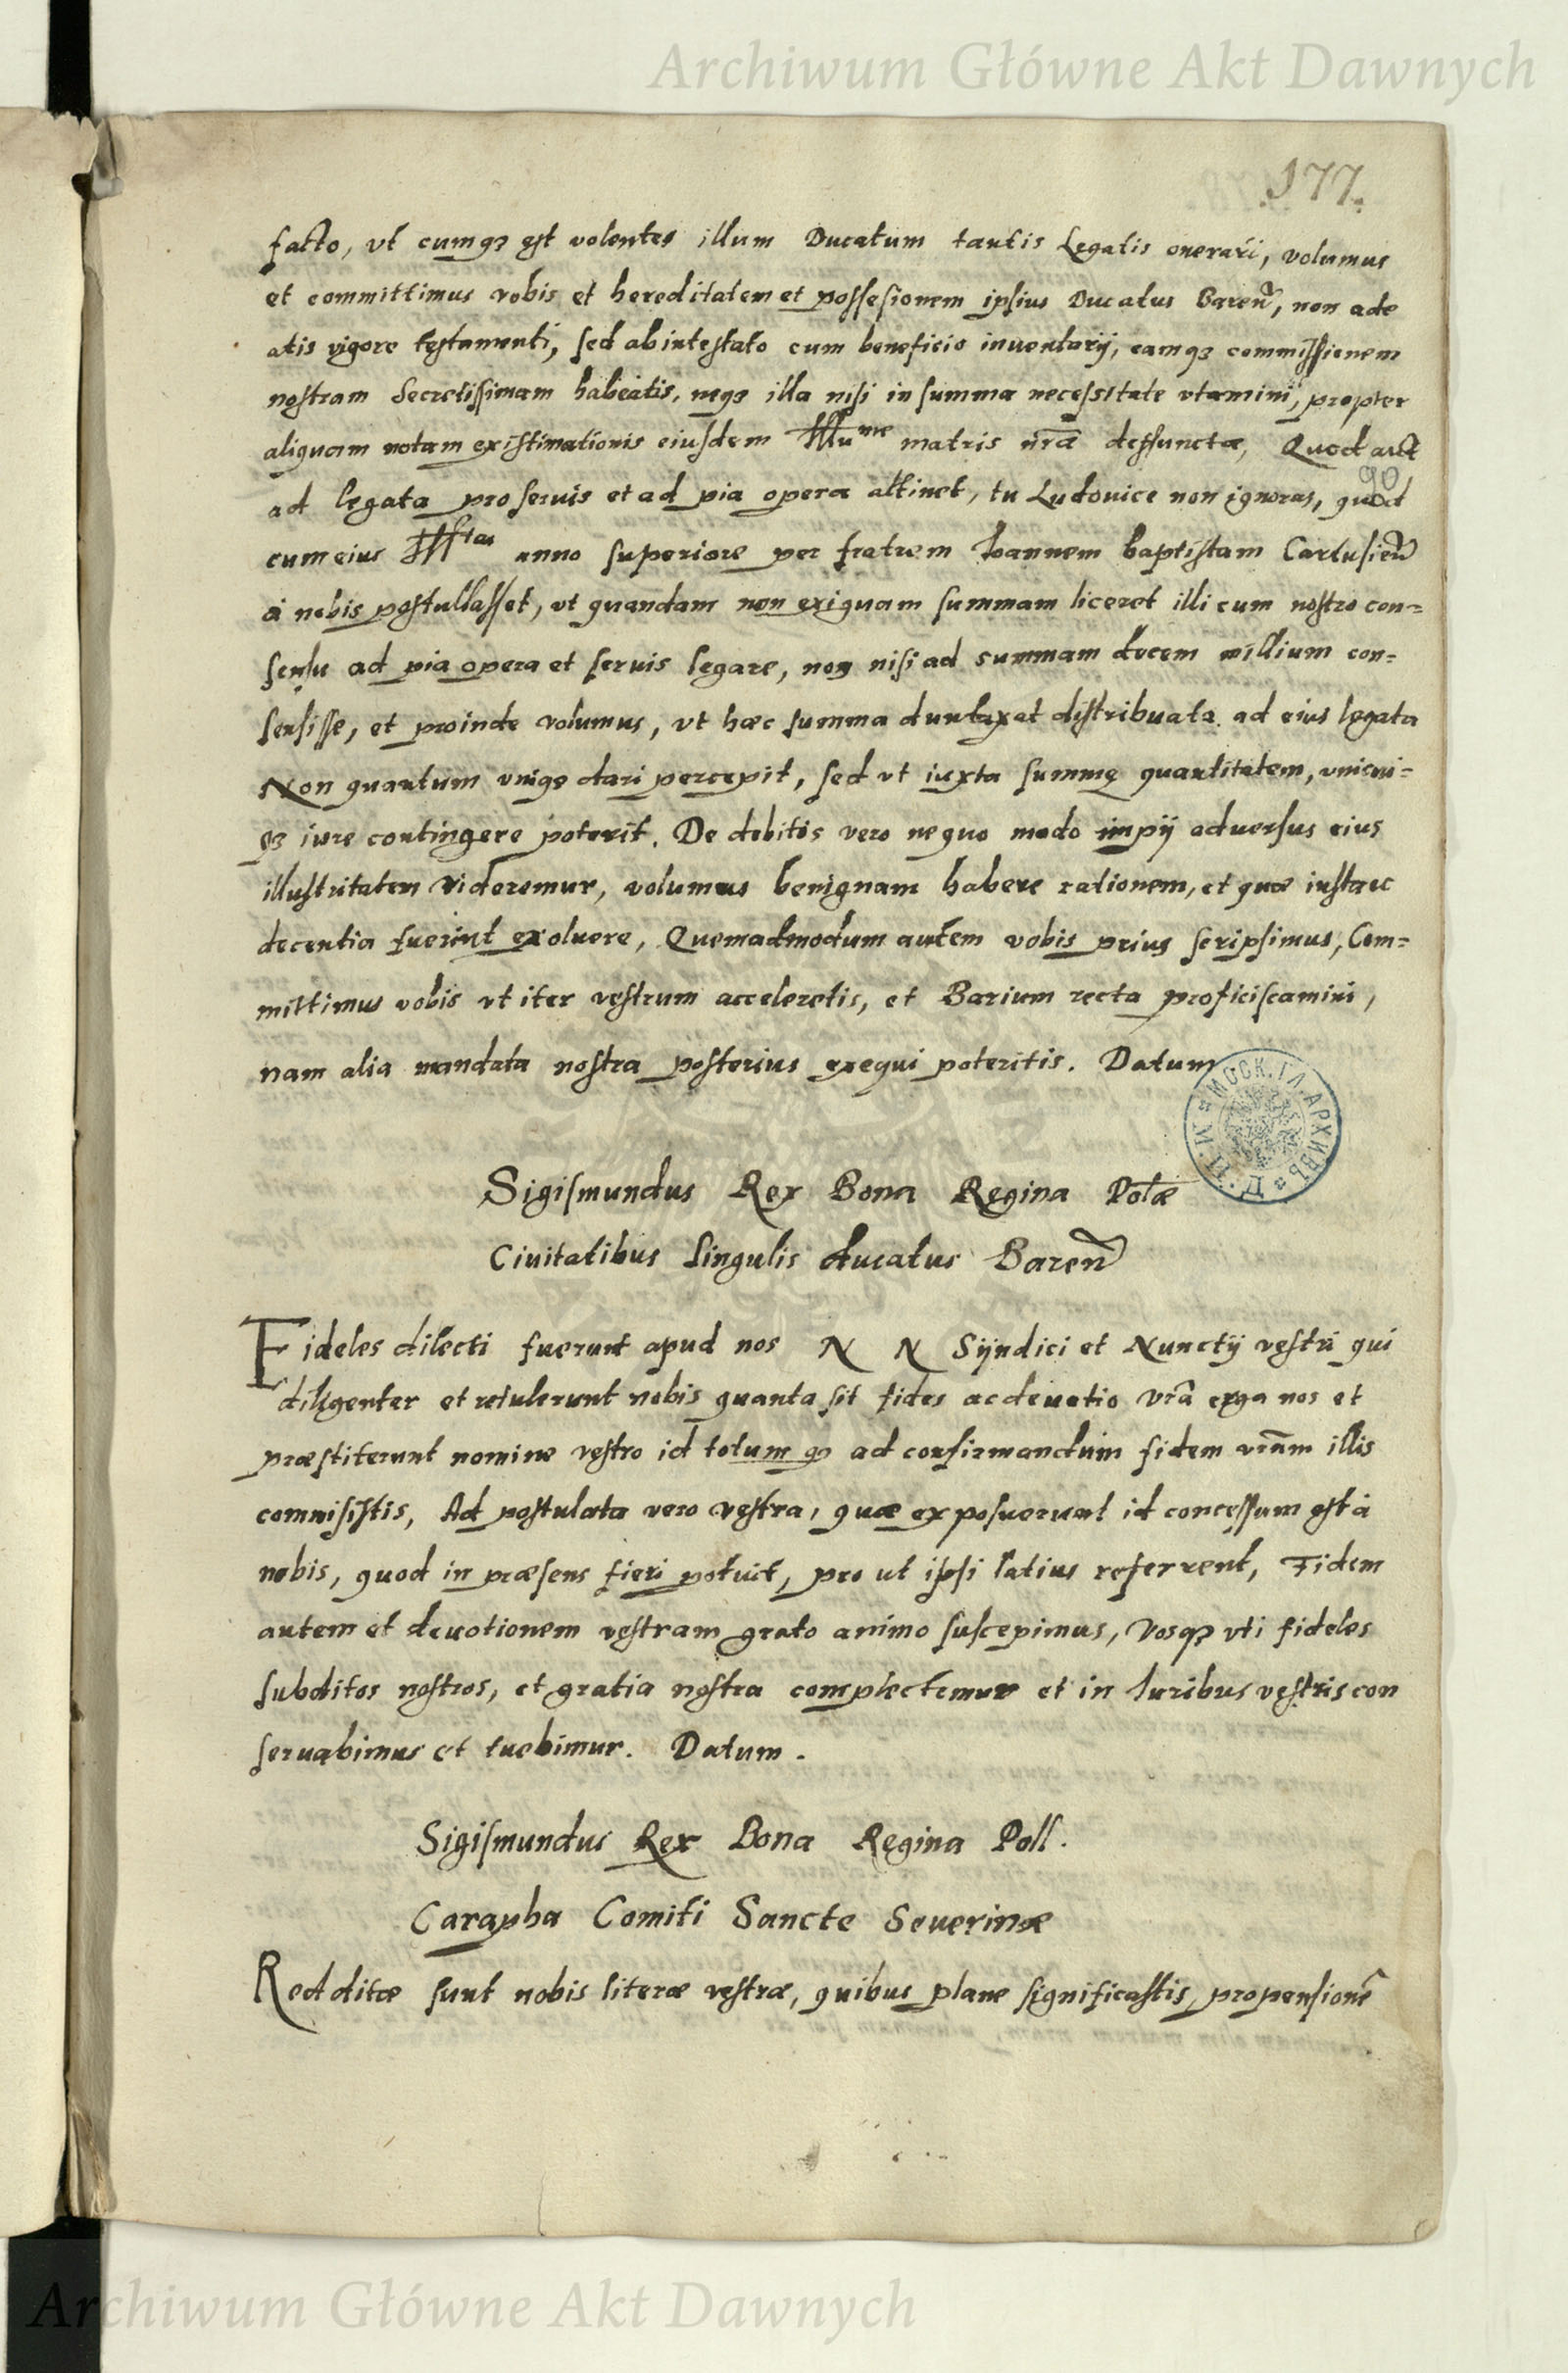 Archiwum Główne Akt Dawnych
177.
facto, vt cumqȝ est volentes illum Ducatum tantis Legatis onerari, volumus
et committimus vobis et hereditatem et possesionem ipsius Ducatus Bareñ, non ade
atis vigore testamenti, sed abintestato cum beneficio inuentarij, eamqȝ commissionem
nostram Secretissimam habeatis, neqȝ illa nisi in summa necessitate vtamini, propter
aliquam notam existimationis eiusdem Illu^me matris nrae deffunctae, Quod aut
90
ad legata pro seruis et ad pia opera attinet, tu Ludouice non ignoras, quod
cum eius Ill^tas anno superiore per fratrem Ioannem baptistam Cartusieñ
à nobis postullasset, vt quandam non exiguam summam liceret illi cum nostro con=
sensu ad pia opera et seruis legare, non nisi ad summam decem millium con=
sensisse, et proinde volumus, vt haec summa duntaxat distribuata ad eius legata
Non quantum vniqȝ dari percepit, sed vt iuxta summę quantitatem, vnicui=
qȝ iure contingere poterit. De debitis vero ne quo modo impij aduersus eius
illustritatem videremur, volumus benignam habere rationem, et quae iusta ec
decentia fuerint exoluere, Quemadmodum autem vobis prius scripsimus, Com=
mittimus vobis vt iter vestrum acceleretis, et Barium recta proficiscamini,
nam alia mandata nostra posterius exequi poteritis. Datum
МОСК. ГЛ. АРХИВЪ
Sigismundus Rex Bona Regina Polae
Ciuitatibus singulis ducatus Bareñ
Fideles dilecti fuerunt apud nos N N Sijndici et Nunctij vestri qui
diligenter et retulerunt nobis quanta sit fides ac deuotio vrã erga nos et
praestiterunt nomine vestro id totum qȝ ad confirmandum fidem vrãm illis
commisistis, Ad postulata vero vestra, quae exposuerunt id concessum est à
nobis, quod in praesens fieri potuit, pro ut ipsi latius referrent, Fidem
autem et deuotionem vestram grato animo suscepimus, Vosqȝ vti fideles
subditos nostros, et gratia nostra complectemur et in Iuribus vestris con
seruabimus et tuebimur. Datum.
Sigismundus Rex Bona Regina Poll.
Carapha Comiti Sancte Seuerinae
Redditae sunt nobis literae vestrae, quibus plane significastis, propensionẽ
Archiwum Główne Akt Dawnych